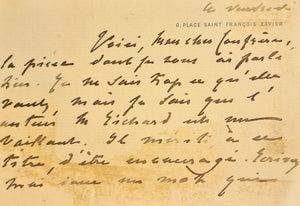 le vendredi
6, PLACE SAINT FRANÇOIS XAVIER
Voici, Mon cher Confrère,
la pièce dont je vous ai parlé
hier. Je ne sais trop ce qu'elle
vaut, mais je sais que l'
auteur M Richard est un
vaillant. Il mérite à ce
titre, d'être encouragé. Ecrivez
moi donc un mot que